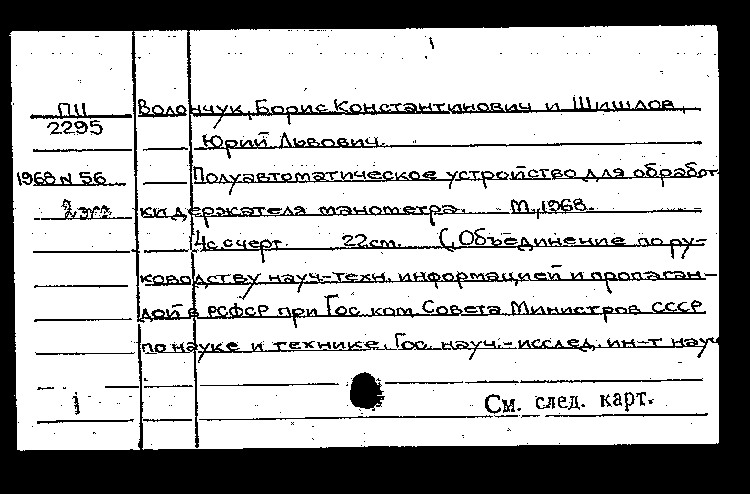 ПII Волончук, Борис Константинович и Шишлов,
2295
Юрий Львович.
1968 N 56 Полуавтоматическое устройство для обработ-
2 экз ки держателя манометра. М., 1968.
4 с. с черт. 22 см. (Объединение по ру-
ководству науч.-техн. информацией и пропаган-
дой в РСФСР при Гос. ком. Совета Министров СССР
по науке и технике. Гос. науч.-исслед. ин-т науч
1 См. след. карт.